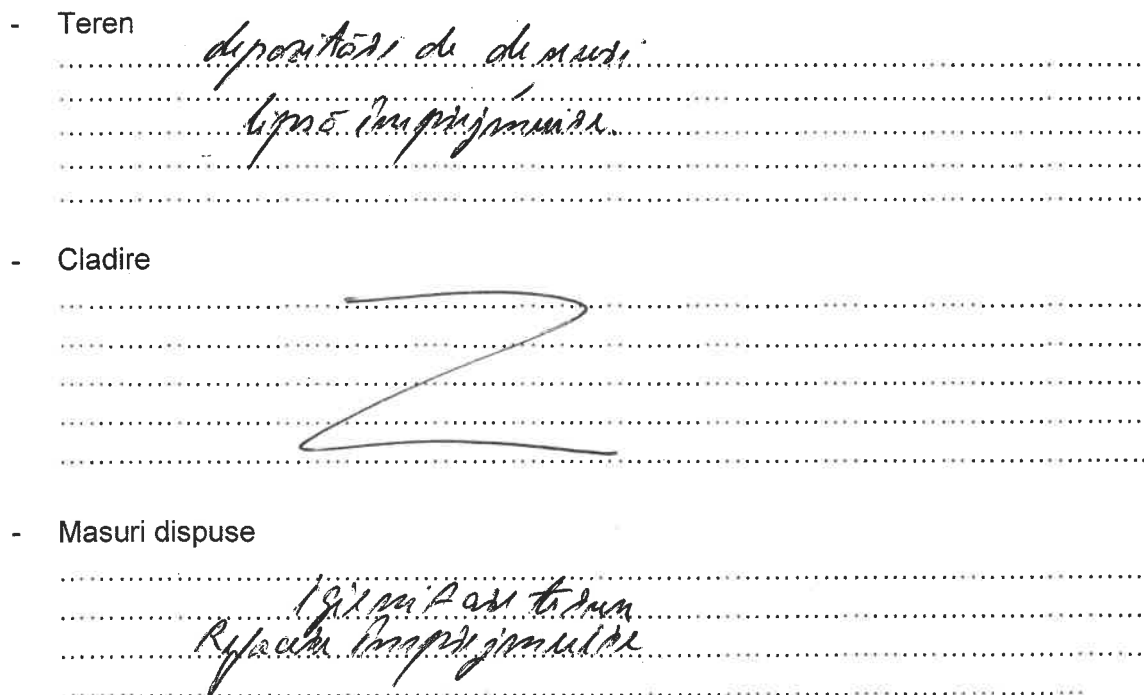 - Teren
depozitări de deseuri
lipsă împrejmuire.
- Cladire
- Masuri dispuse
Igienizare teren
Refacere împrejmuire